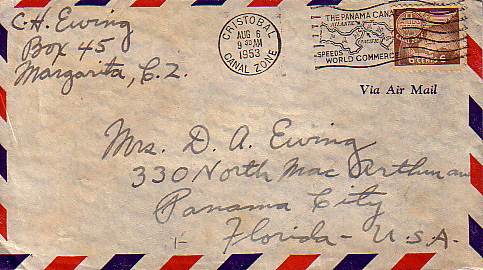 C. H. Ewing
Box 45
Margarita, C. Z.
CRISTOBAL
AUG 6
9 30 AM
1953
CANAL ZONE
THE PANAMA CANAL
ATLANTIC
PACIFIC
SPEEDS
WORLD COMMERCE
6 CENTS
Via Air Mail
Mrs. D. A. Ewing
330 North Mac Arthur ave
Panama City
Florida - U.S.A.